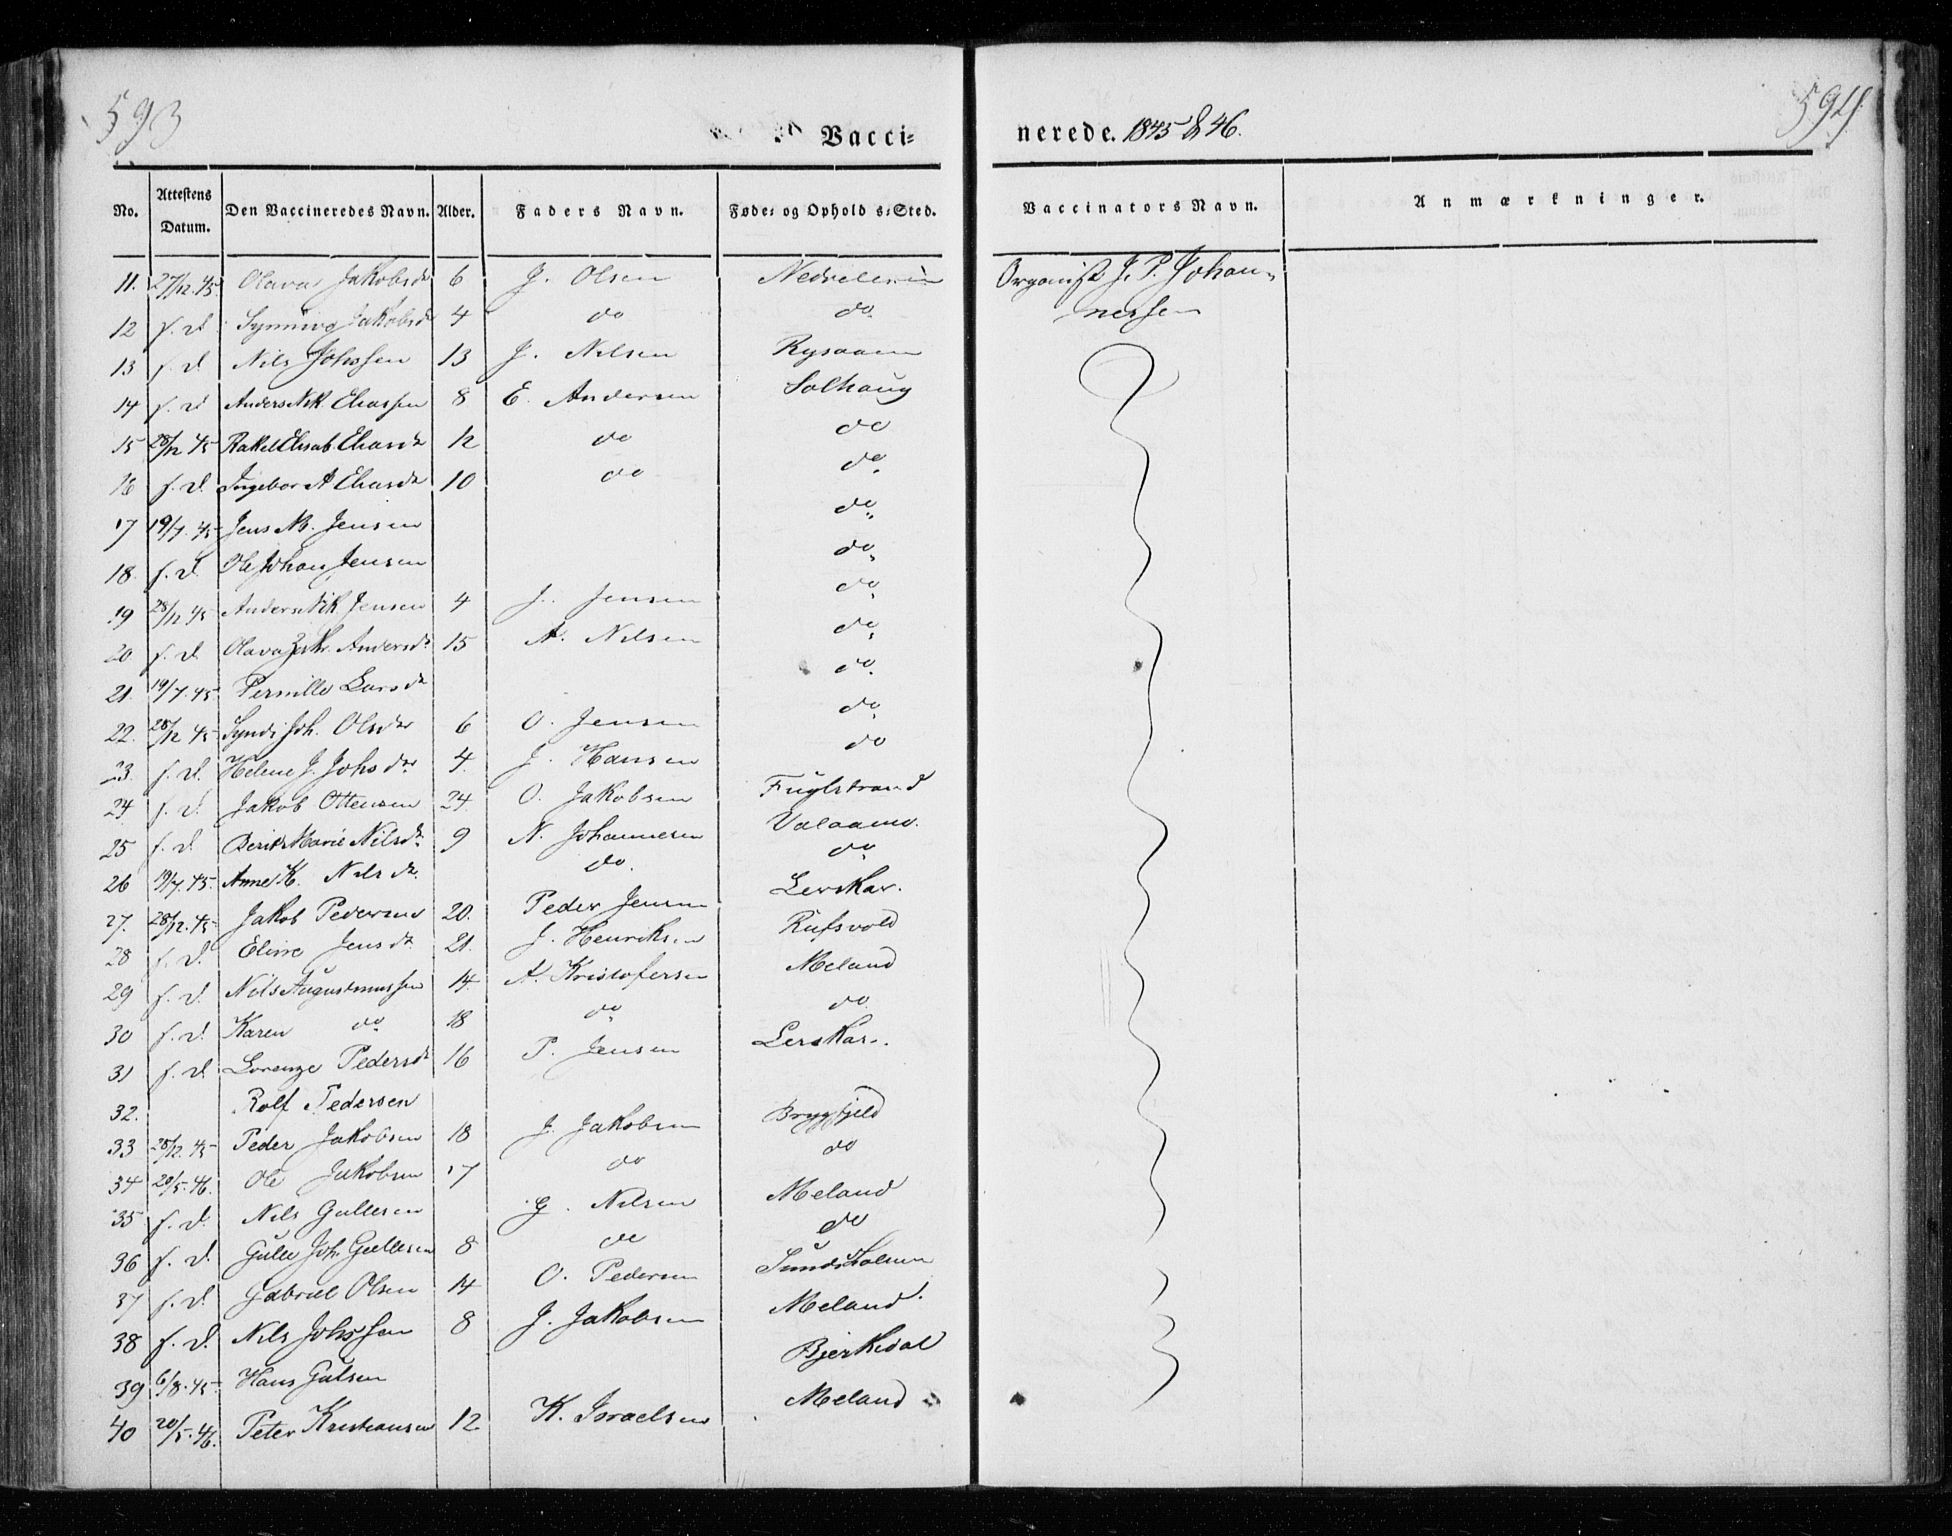 593
594
Vacci-
nerede. 1845 & 46.
No. Attestens Datum. Den Vaccineredes Navn. Alder. Faders Navn. Føde- og Opholds-Sted. Vaccinators Navn. Anmærkninger.
11. 27/12.45. Olava Jakobsdr 6 J. Olsen Organist J. P. Johan-
12 f. d. Synnivg Jakobsdr 4 do do nessen
13 f. d. Nils Johssen 13 J. Nilsen Rysaaen
14 f. d. Anders Nik. Eliassen 8 E. Andersen Solhaug
15 28/12 45 Rakel Elisab. Eliasdr 12 do do
16 f. d. Ingebor A Eliasdr 10 do do
17 19/7. 45 Jens M. Jensen do
18. f. d. Ole Johan Jensen do
19 28/12 45 Anders Nik. Jensen 4 J. Jensen do
20 f. d. Olava Andersdr 15 A. Nilsen do
21. 19/7. 45. Pernille Larsdr do
22. 28/12 45 Joh. Olsdr 6 O. Jensen do
23. f. d. Helene J. Johsdr 4. J. Hansen do
24 f. d. Jakob Ottensen 24. O. Jakobsen Fuglstrand
25 f. d. Berit Marie Nilsdr 9 N. Johannesen Valaamo.
26 19/7. 45. Anne K. Nilsdr. do. do
27. 28/12. 45 Jakob Pedersen 20. Peder Jensen Lerskar.
28 f. d. Eline Jensdr. 21. J. Henriksen Rufsvold
29 f. d. Nils Augustinussen 14 A. Kristofersen Meland
30 f. d. Karen do 18 do do
31 f. d. Lorenze Pedersdr 16 P. Jensen Lerskar.
32. Rolf Pedersen
33 28/12. 45 Peder Jakobsen 18 J. Jakobsen Bryggfjeld
34 20/5. 46. Ole Jakobsen 17 do do
35 f. d. Nils Gullesen G. Nilsen Meland
36 f. d. Gulle Joh. Gullesen 8 do do
37 f. d. Gabriel Olsen 14 O. Pedersen Sundsholmen
38 f. d. Nils Johssen 8 J. Jakobsen Meland.
39 6/8. 45. Hans Gulsen Bjerkedal
40 20/5. 46. Peter Kristiansen 12 K. Israelsen Meland